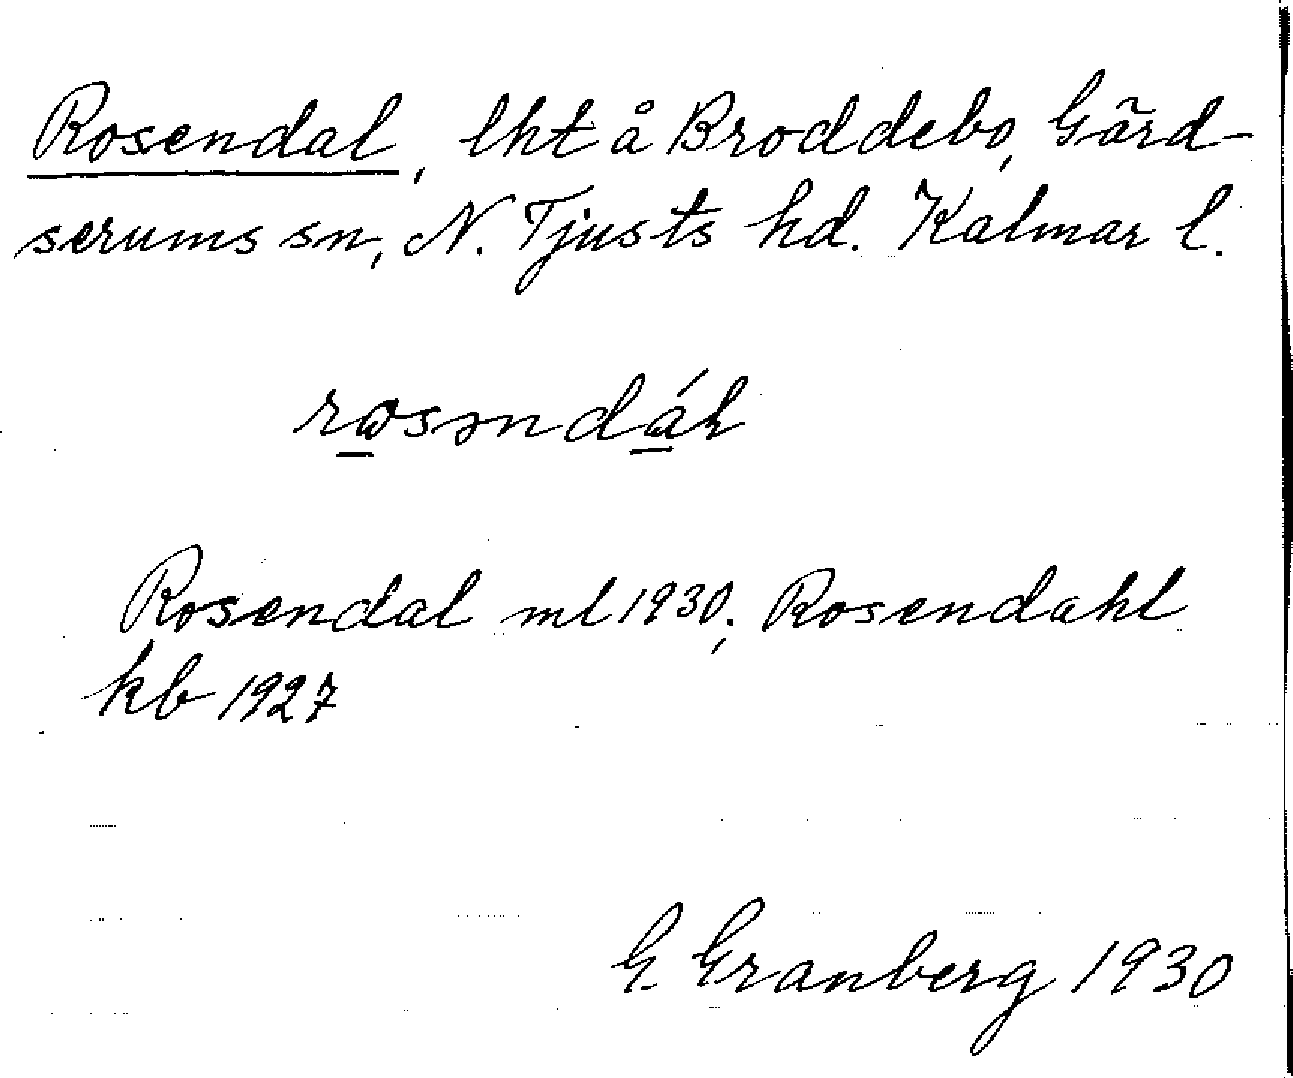 Rosendal, lht å Broddebo, Gärd-
serums sn, N. Tjusts hd. Kalmar l.
Rosendal ml 1930; Rosendahl
kb 1927
G. Granberg 1930